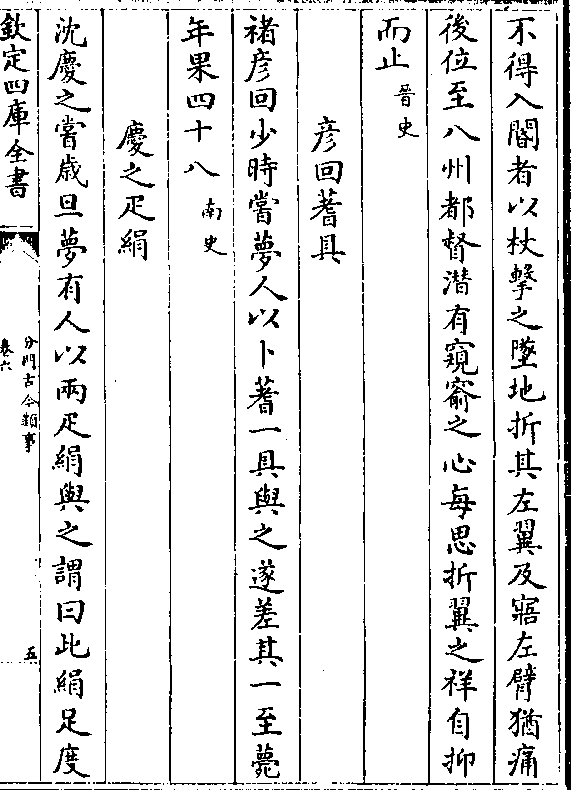 不得入閽者以杖擊之墜地折其左翼及寤左臂猶痛
後位至八州都督潜有窺窬之心每思折翼之祥自抑
而止晉史
彦回蓍具
褚彦回少時嘗夢人以卜蓍一具與之遂差其一至薨
年果四十八南史
慶之疋絹
沈慶之嘗歳旦夢有人以兩疋絹與之謂曰此絹足度
欽定四庫全書
分門古今類事
卷六
五